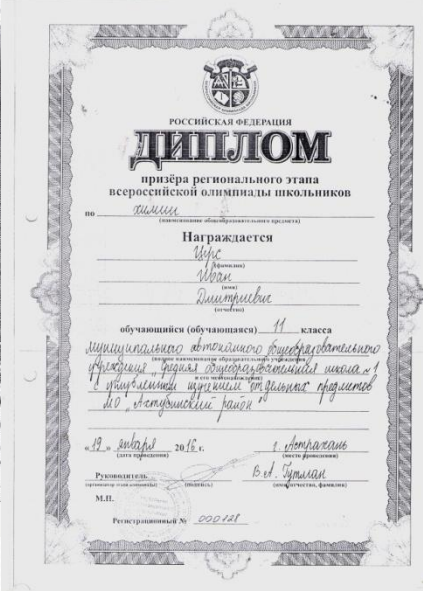 РОССИЙСКАЯ ФЕДЕРАЦИЯ
ДИПЛОМ
призёра регионального этапа
всероссийской олимпиады школьников
по химии
(наименование общеобразовательного предмета)
Награждается
(фамилия)
Иван
(имя)
Дмитриевич
(отчество)
обучающийся (обучающаяся) 11 класса
муниципального автономного общеобразовательного
(полное наименование образовательного учреждения
учреждения, средняя общеобразовательная школа № 1
с углубленным изучением отдельных предметов
МО "Ахтубинский район"
«19» января 2016 г. г. Астрахань
(дата проведения) (место проведения)
Руководитель В.А. Гутман
(подпись) (имя, отчество, фамилия)
М.П.
Регистрационный № 000128